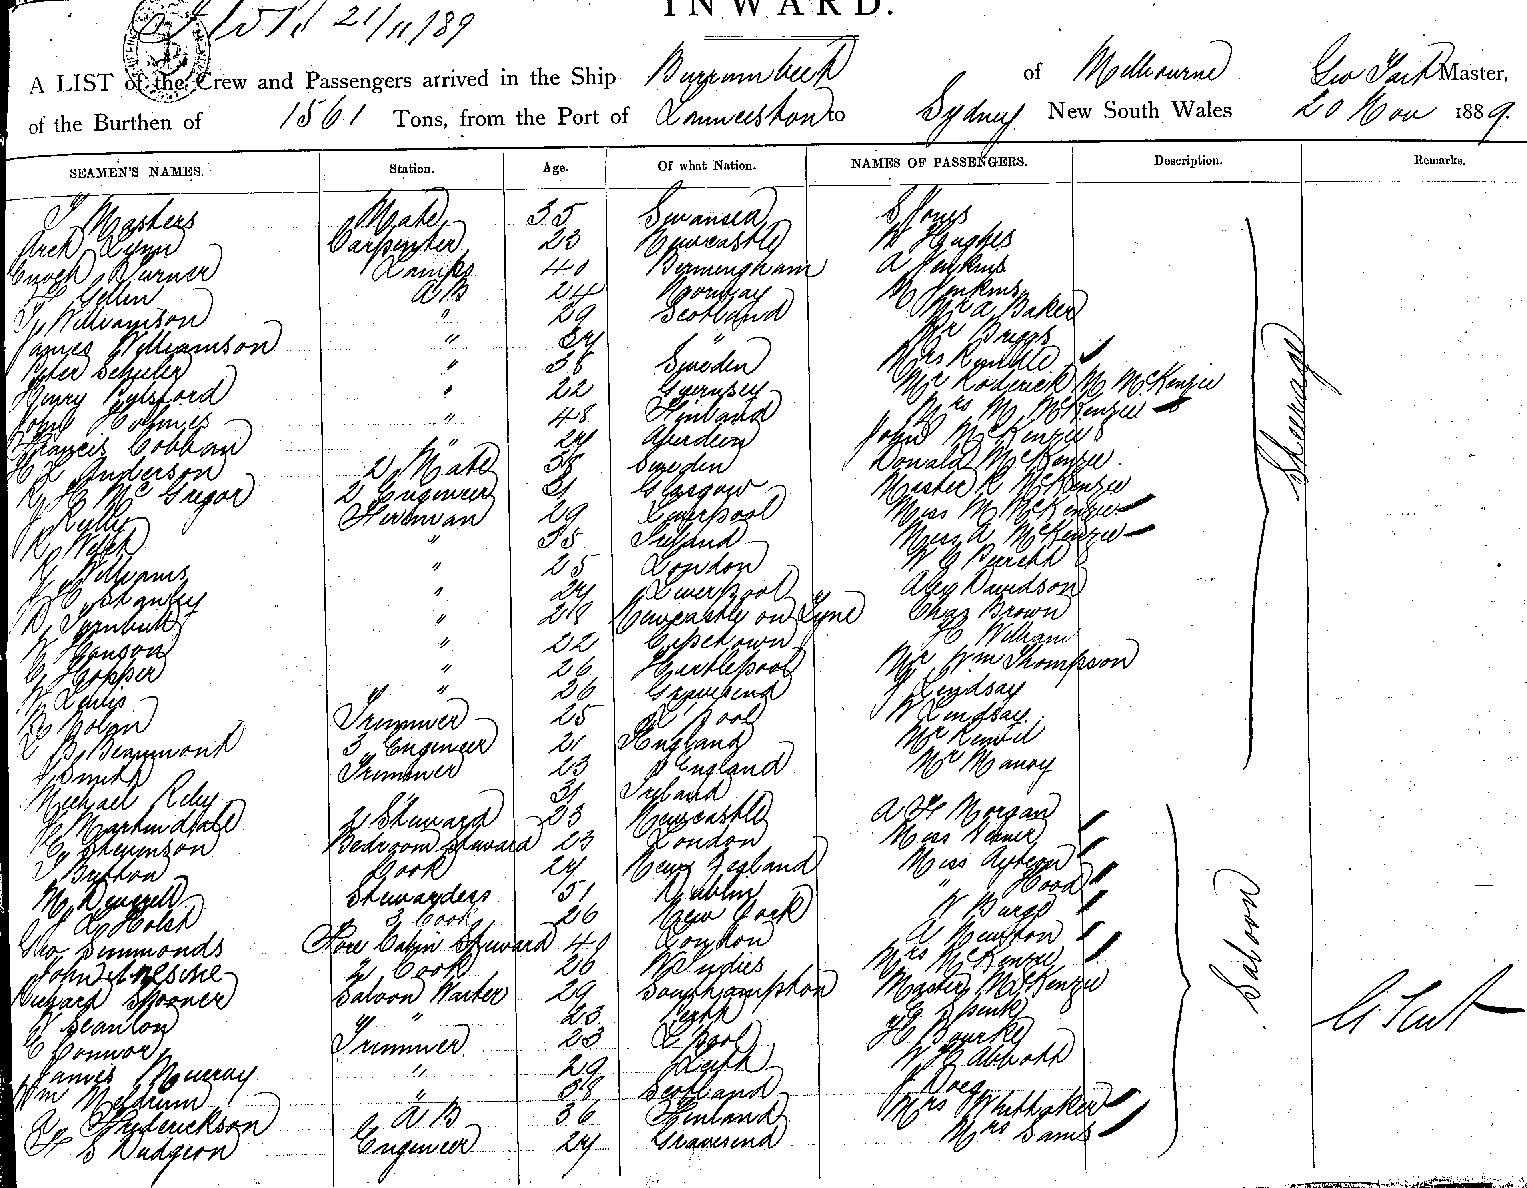 21/11/89
INWARD.
A LIST of the Crew and Passengers arrived in the Ship Burrumbeet of Melbourne Geo Tait Master,
of the Burthen of 1561 Tons, from the Port of Launceston to Sydney New South Wales 20 Nov 1889.
SEAMEN'S NAMES. Station. Age. Of what Nation. NAMES OF PASSENGERS. Description. Remarks.
J Masters Mate 35 Swansea S Jones
Arch Lynn Carpenter 23 Newcastle W Hughes
Enoch Turner Lamps 40 Birmingham A Jenkins
Gellen AB 24 Norway M Jenkins
Williamson " 29 Scotland Mr A Baker
James Williamson " 24 " Mr Briggs
Peter Schuler " 38 Sweden Mrs Rumble
Henry Pulsford " 22 Guernsey Mr Roderick M McKenzie
John Holmes " 48 Finland Mrs M McKenzie
Francis Cobban " 24 Aberdeen John McKenzie
Anderson 2 Mate 38 Sweden Donald McKenzie
R H McGregor 2 Engineer 31 Glasgow Master R McKenzie
J Kelly Fireman 29 Liverpool Miss M McKenzie
R Welch " 35 Ireland Miss A McKenzie
Williams " 25 London W G Burchd
Stanley " 24 Liverpool Alex Davidson
Turnbull " 28 Newcastle on Tyne Chas Brown
W Hanson " 22 Capetown H William
C Hopper " 26 Hartlepool Mr Wm Thompson
W Lewis " 26 Gravesend J Lindsay
Bolan Trimmer 25 L'Pool W Lindsay
B Beaumont 3 Engineer 21 England Mr
J Smith Trimmer 23 England Mr
Michael Riley " 31 Ireland
H Martindale 2 Steward 23 Newcastle A H Morgan
Stevenson Bedroom Steward 23 London Miss
Britton Cook 24 New Zealand Miss
M Deverell Stewardess 51 Dublin " Hood
Holst 3 Cook 26 New York W Burge
Geo Simmonds Fore Cabin Steward 40 London A Newton
John 2 Cook 26 W Indies Mrs McKenzie
Richard Spooner Saloon Waiter 29 Southampton Master McKenzie
Scanlon " 23 Perth G Spink
C Connor Trimmer 23 L'Pool H Bourke
James Murray " 29 Leith W H Abbott
Wm Meldrum " 38 Scotland J
Frederickson AB 36 Finland Mrs Whittaker
S Dudgeon Engineer 24 Gravesend Mrs Sams
Steerage
Saloon
G Tait